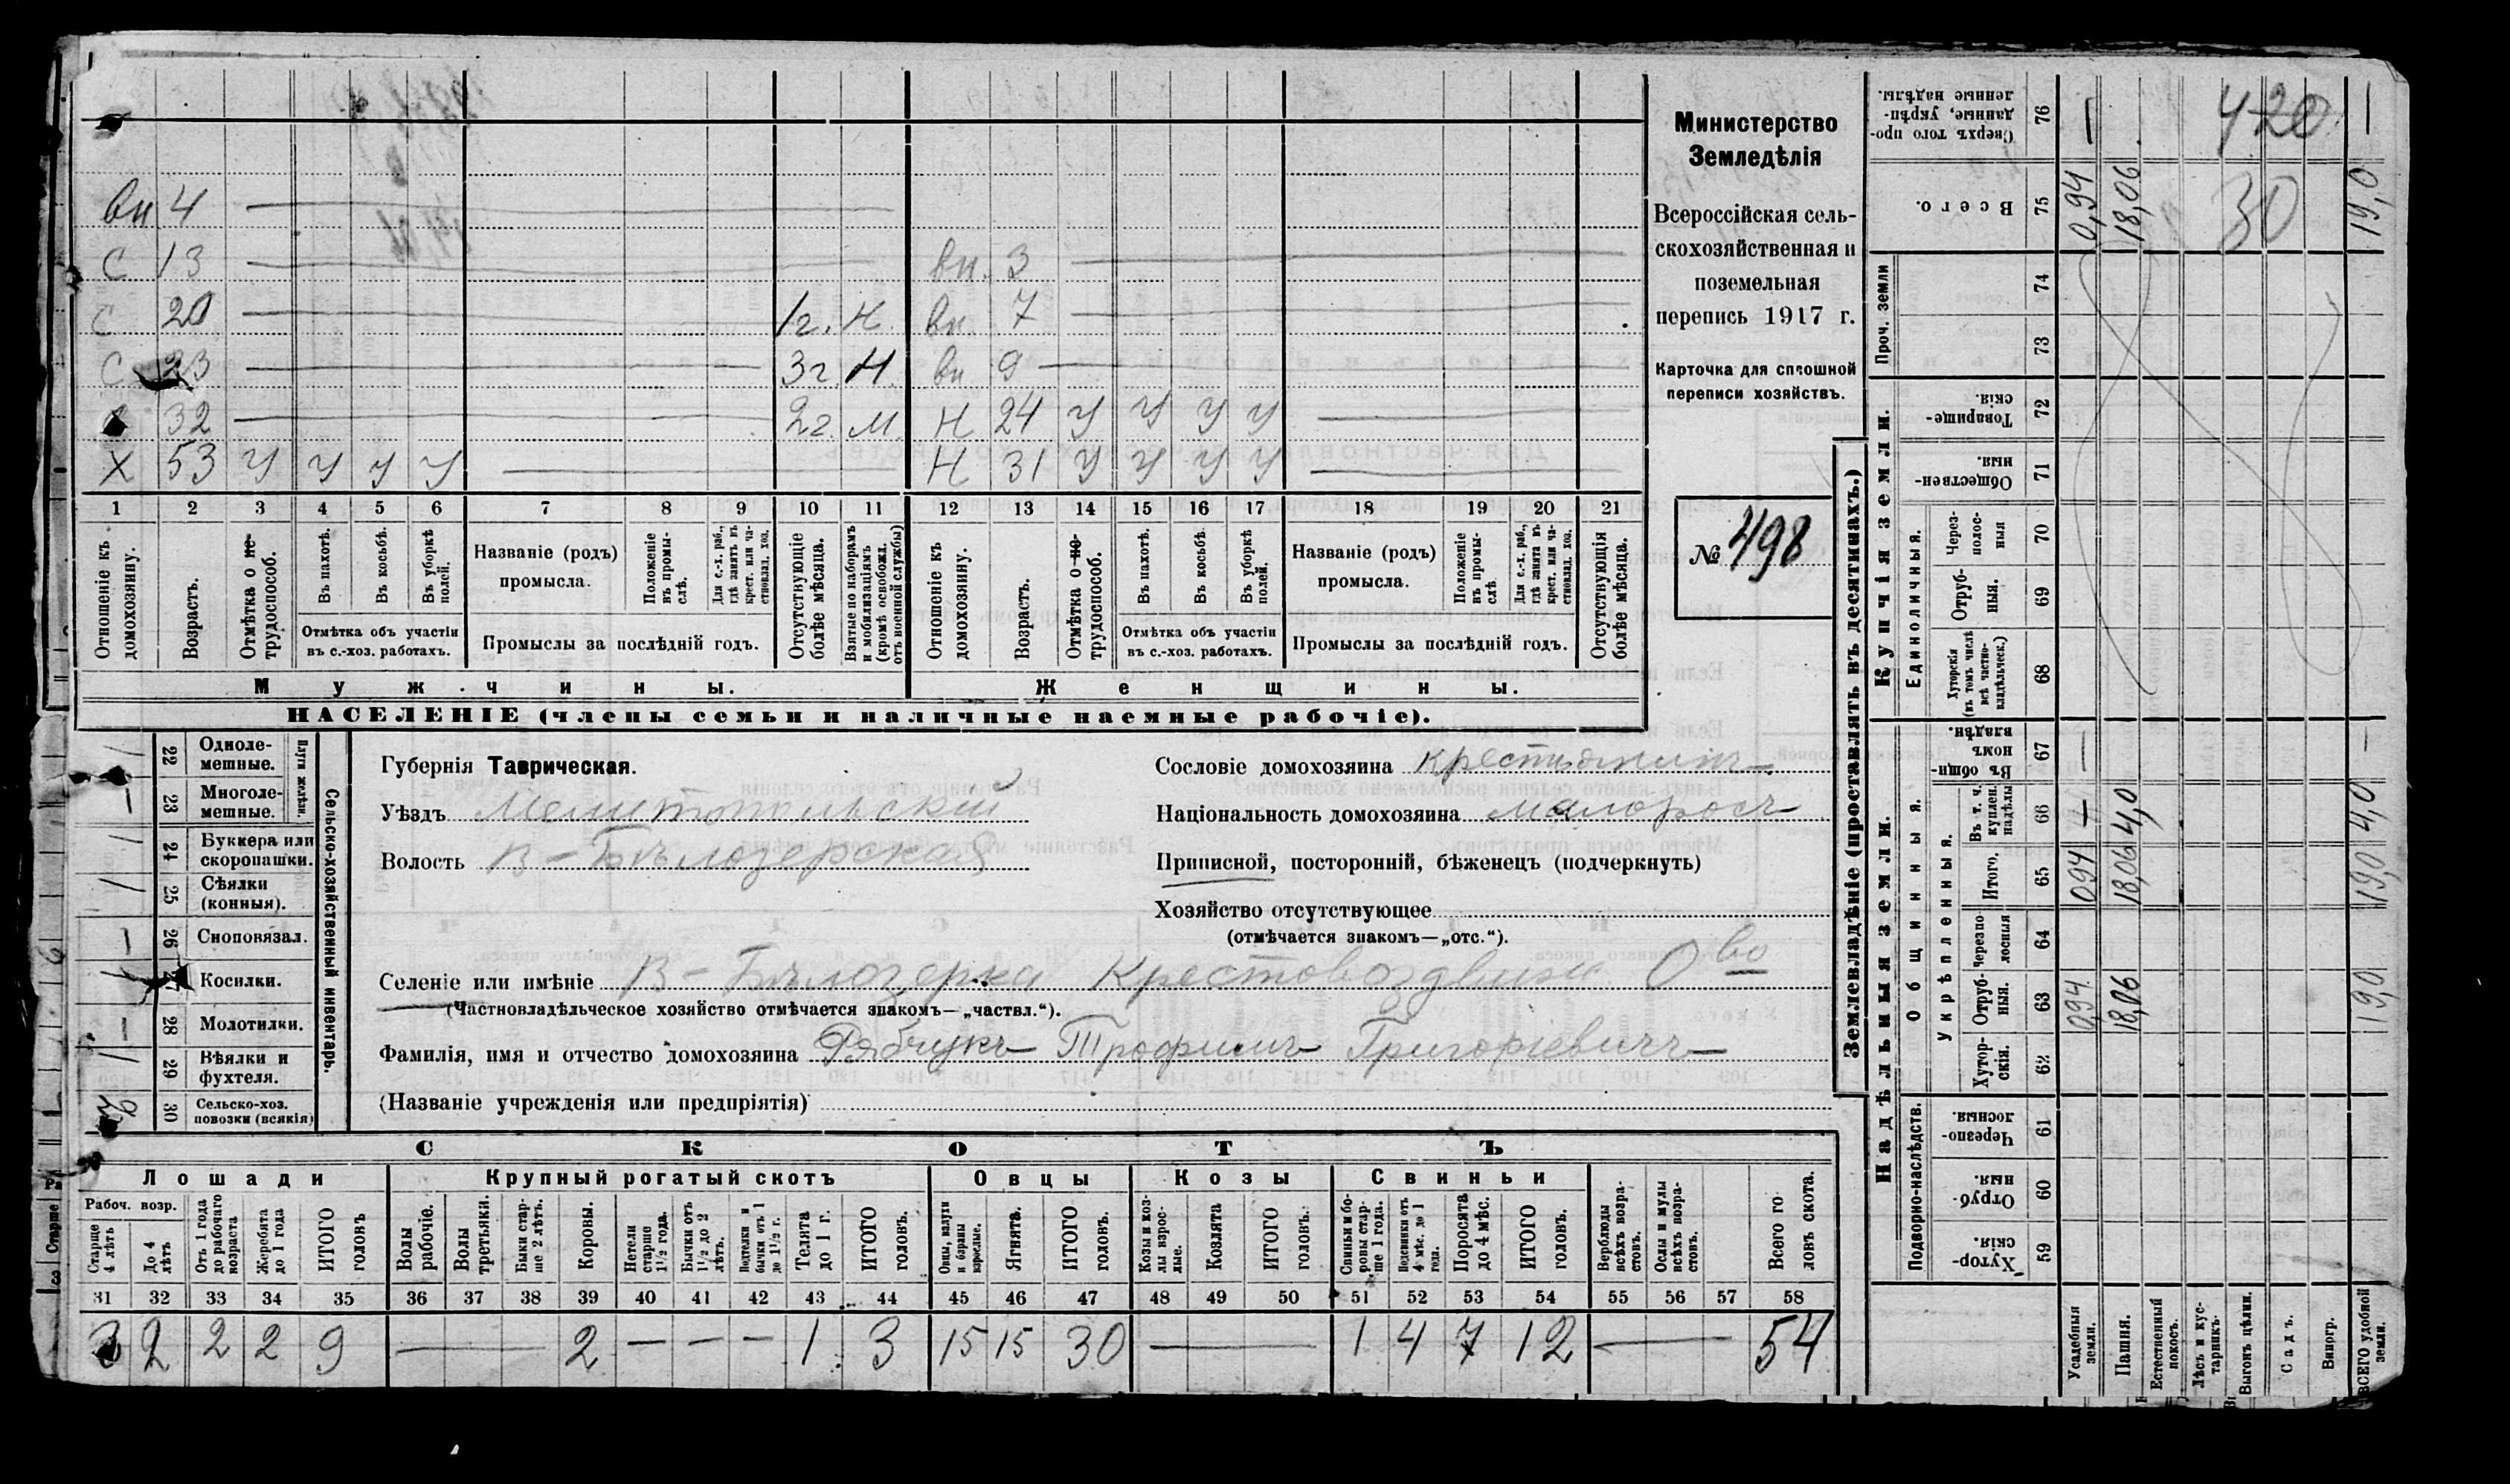 вн 4
С 13 вн. 3
С 20 1г. Н. вн. 7
С 23 3г. Н. вн 9
32 2г. М. Н 24 У У У У
Х 53 У У У У Н 31 У У У У
1 2 3 4 5 6 7 8 9 10 11 12 13 14 15 16 17 18 19 20 21
Отношеніе къ домохозяину.
Возрастъ.
Отмѣтка о не-трудоспособ.
Въ пахотѣ.
Въ косьбѣ.
Въ уборкѣ полей.
Отмѣтка объ участіи въ с.-хоз. работахъ.
Названіе (родъ) промысла.
Положеніе въ промыслѣ.
Для с.-х. раб., гдѣ занятъ въ крест. или частновлад. хоз.
Промыслы за послѣдній годъ.
Отсутствующіе болѣе мѣсяца.
Взятые по наборамъ и мобилизаціямъ (кромѣ освобожд. отъ военной службы)
Отношеніе къ домохозяину.
Возрастъ.
Отмѣтка о не-трудоспособ.
Въ пахотѣ.
Въ косьбѣ.
Въ уборкѣ полей.
Отмѣтка объ участіи въ с.-хоз. работахъ.
Названіе (родъ) промысла.
Положеніе въ промыслѣ.
Для с.-х. раб., гдѣ занята въ крест. или частновлад. хоз.
Промыслы за послѣдній годъ.
Отсутствующія болѣе мѣсяца.
Мужчины. Женщины.
НАСЕЛЕНІЕ (члены семьи и наличные наемные рабочіе).
Министерство
Земледѣлія
Всероссійская сель-
скохозяйственная и
поземельная
перепись 1917 г.
Карточка для сплошной
переписи хозяйствъ.
№ 498
Сельско-хозяйственный инвентарь.
Плуги желѣзн.
22 Одноле-мешные. 1
23 Многоле-мешные. —
24 Буккера или скоропашки. 1
25 Сѣялки (конныя). 1
26 Сноповязал. —
27 Косилки. 1
28 Молотилки. —
29 Вѣялки и фухтеля. 1
30 Сельско-хоз. повозки (всякія)
Губернія Таврическая.
Уѣздъ Мелитопольскій
Волость В-Бѣлозерская
Сословіе домохозяина крестьянинъ
Національность домохозяина малороссъ
Приписной, посторонній, бѣженецъ (подчеркнуть)
Хозяйство отсутствующее
(отмѣчается знакомъ—„отс.“).
Селеніе или имѣніе В-Бѣлозерка Крестовоздвиж О во
(Частновладѣльческое хозяйство отмѣчается знакомъ—„частвл.“).
Фамилія, имя и отчество домохозяина Рябчукъ Трофимъ Григоріевичъ
(Названіе учрежденія или предпріятія)
СКОТЪ
Лошади Крупный рогатый скотъ Овцы Козы Свиньи
Рабоч. возр.
Старше 4 лѣтъ
До 4 лѣтъ
Отъ 1 года до рабочаго возраста
Жеребята до 1 года
ИТОГО головъ
Волы рабочіе.
Волы третьяки.
Быки старше 2 лѣтъ.
Коровы.
Нетели старше 1½ года.
Бычки отъ 1½ до 2 лѣтъ.
Подтелки и бычки отъ 1 до 1½ г.
Телята до 1 г.
ИТОГО головъ.
Овцы, валухи и бараны взрослые.
Ягнята.
ИТОГО головъ.
Козы и козлы взрослые.
Козлята
ИТОГО головъ.
Свиньи и боровы старше 1 года.
Подсвинки отъ 4 мѣс. до 1 года.
Поросята до 4 мѣс.
ИТОГО головъ.
Верблюды всѣхъ возрастовъ.
Ослы и мулы всѣхъ возрастовъ.
Всего головъ скота.
31 32 33 34 35 36 37 38 39 40 41 42 43 44 45 46 47 48 49 50 51 52 53 54 55 56 57 58
2 2 2 9 — 2 — — — 1 3 15 15 30 — 1 4 7 12 — 54
Землевладѣніе (проставлять въ десятинахъ.)
Надѣльныя земли. Купчія земли. Проч. земли
Подворно-наслѣдств.
Общинныя.
Укрѣпленныя.
Единоличныя.
59 Хутор-скія.
60 Отруб-ныя.
61 Черезпо-лосныя.
62 Хутор-скія.
63 Отруб-ныя. 0,94 18,06 19,0
64 Черезпо-лосныя
65 Итого. 094 18,06 19,0
66 Въ т. ч. куплен. надѣлы — 4,0 4,0
67 Въ общин-номъ владѣн. — —
68 Хуторскія (въ томъ числѣ всѣ частно-владѣльческ.)
69 Отруб-ныя.
70 Через-полос-ныя
71 Обществен-ныя.
72 Товарище-скія.
73
74
75 Всего. 0,94 18,06 30 19,0
76 Сверхъ того про-данные, укрѣп-ленные надѣлы. — 420 —
Усадебныя земли.
Пашня.
Естественный покосъ.
Лѣсъ и кус-тарникъ.
Выгонъ цѣлин.
Садъ.
Виногр.
ВСЕГО удобной земли.